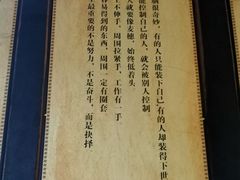 很奇妙，有的人只能装下自己，有的人却装得下世
能控制自己的人，就会被别人控制
人就要像麦穗，始终低着头
不伸手，周围拉紧手，工作有一手
易得到的东西，周围一定有圈套
最重要的不是努力，不是奋斗，而是抉择